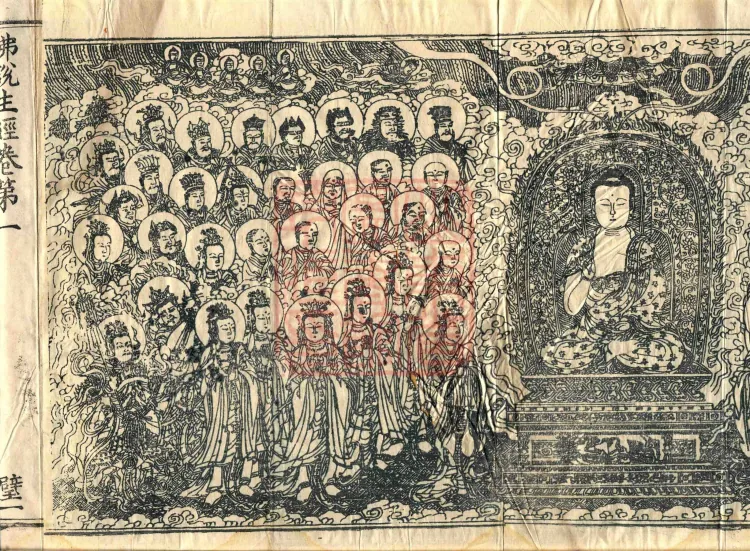 佛說生經卷第一
璧一